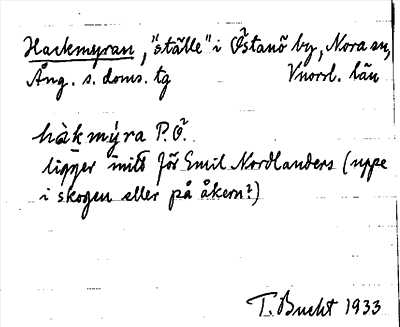 Hackmyran, "ställe" i Östanö by, Nora sn,
Ång. s. doms. tg Vnorrl. län
håkmýra P.Ö.
ligger mitt för Emil Nordlanders (uppe
i skogen eller på åkern?)
T. Bucht 1933